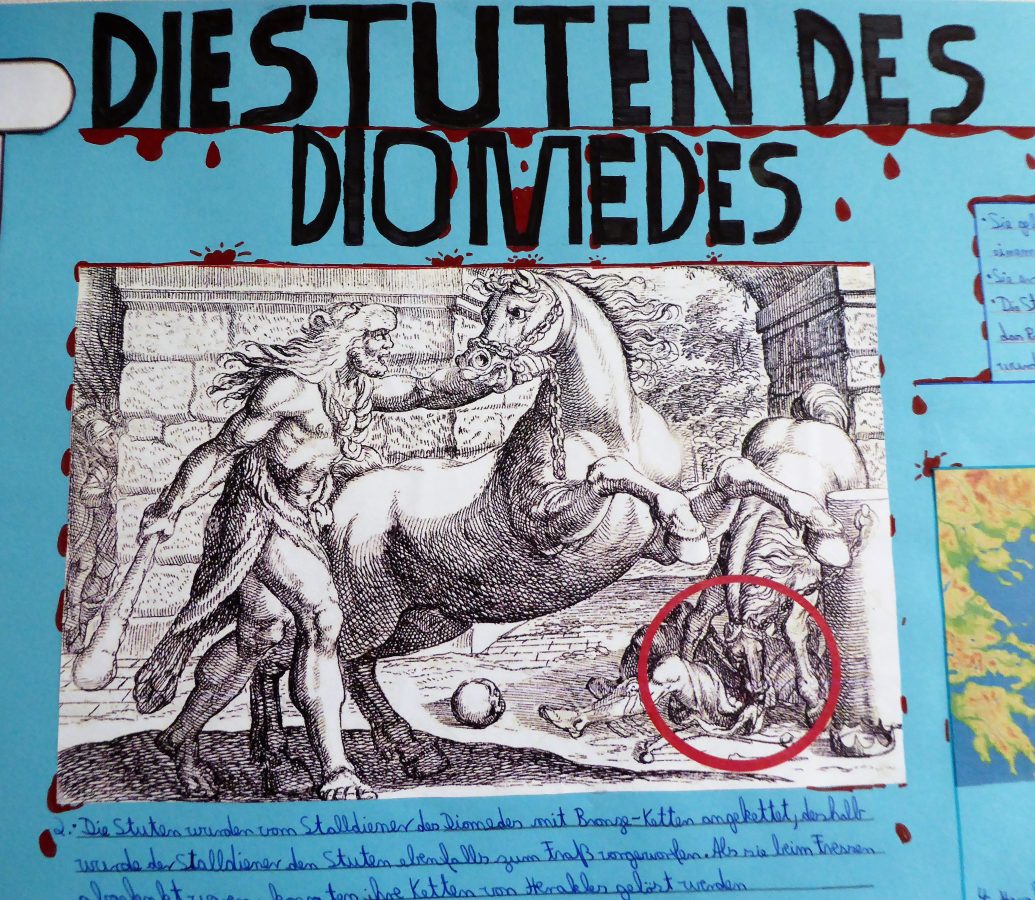 DIE STUTEN DES
DIOMEDES
• Die
einem
• Sie
• Da
den
wurde
2. • Die Stuten wurden vom Stalldiener des Diomedes mit Bronze-Ketten angekettet, deshalb
wurde der Stalldiener den Stuten ebenfalls zum Fraß vorgeworfen. Als sie beim Fressen
abgelenkt waren, konnten ihre Ketten von Herakles gelöst werden